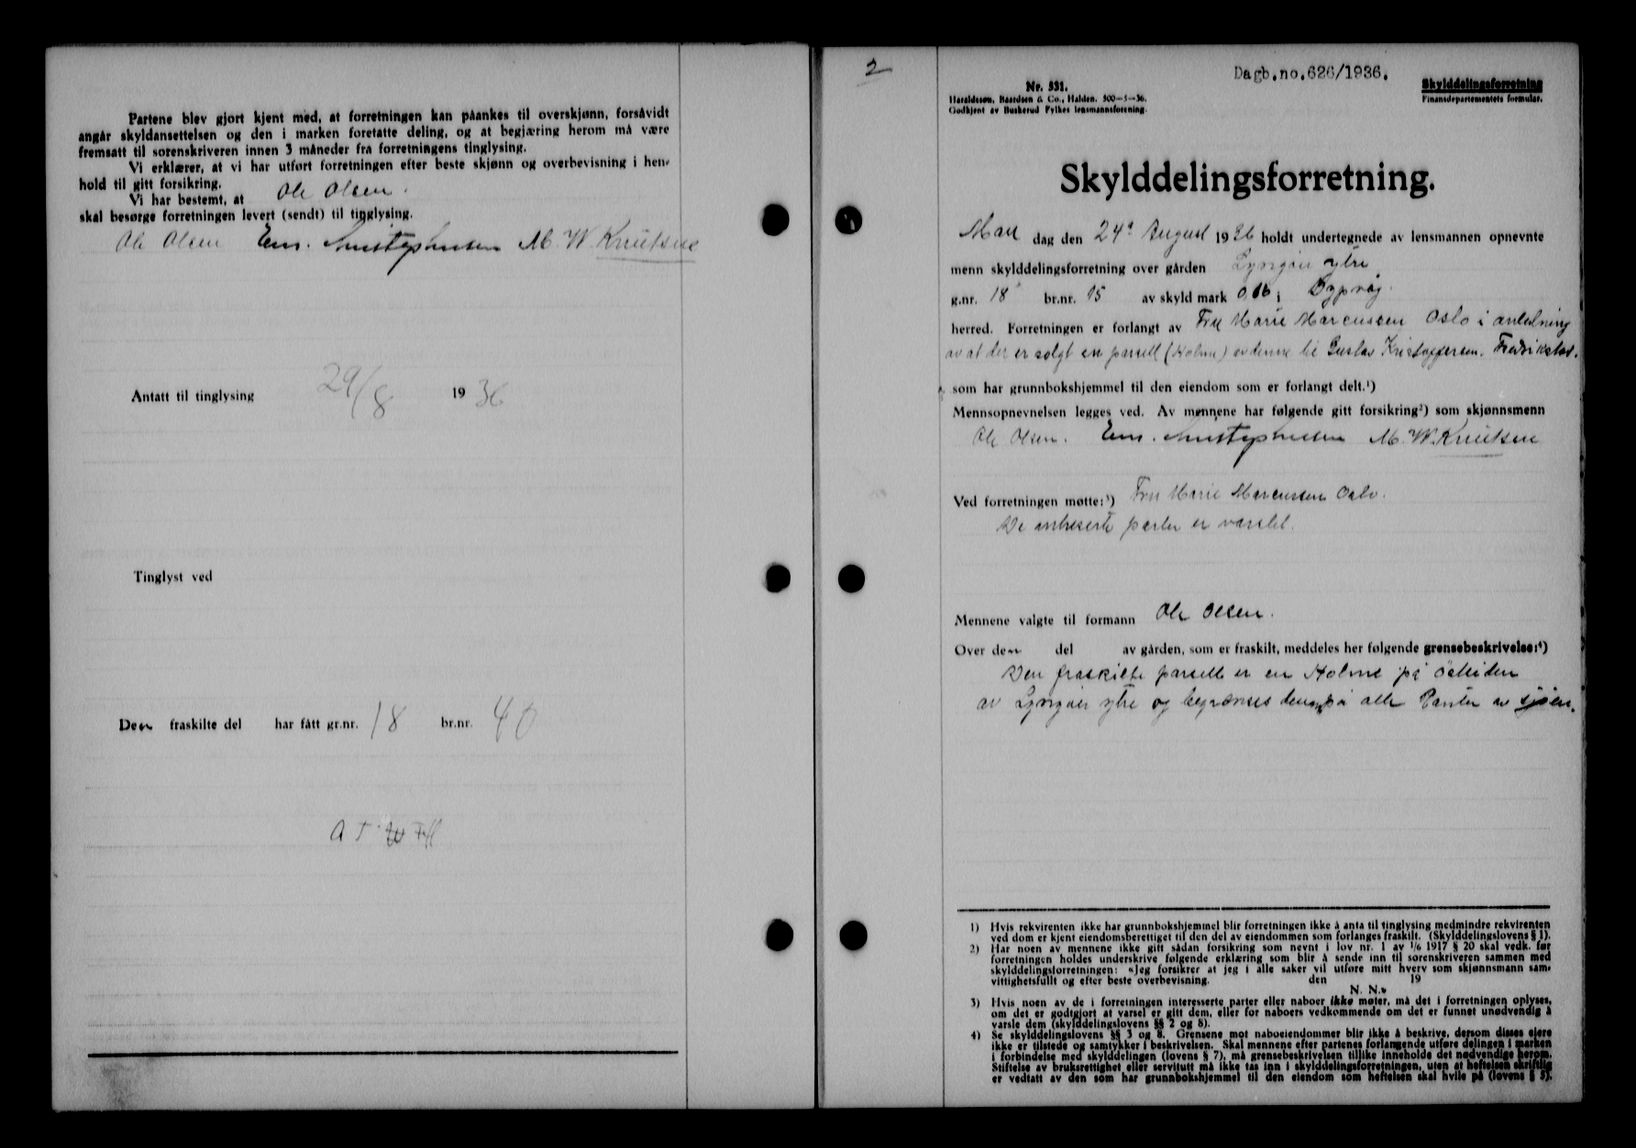 Partene blev gjort kjent med, at forretningen kan påankes til overskjønn, forsåvidt
angår skyldansettelsen og den i marken foretatte deling, og at begjæring herom må være
fremsatt til sorenskriveren innen 3 måneder fra forretningens tinglysing.
Vi erklærer, at vi har utført forretningen efter beste skjønn og overbevisning i hen-
hold til gitt forsikring.
Vi har bestemt, at Ole Olsen.
skal besørge forretningen levert (sendt) til tinglysing.
Ole Olsen Em. M. W. Knutsen
Antatt til tinglysing 29/8 1936
Tinglyst ved
Den fraskilte del har fått gr.nr. 18 br.nr. 40
2
Dagb.no.626/1936.
Nr. 531.
Haraldssen, Baardsen & Co., Halden. 500-5-36.
Godkjent av Buskerud Fylkes lensmannsforening.
Skylddelingsforretning
Finansdepartementets formular.
Skylddelingsforretning.
Man dag den 24de August 1936 holdt undertegnede av lensmannen opnevnte
menn skylddelingsforretning over gården Lyngør ytre
g.nr. 18 br.nr. 15 av skyld mark 0,06 i Dypvåg.
herred. Forretningen er forlangt av Fru Marie Marcussen Oslo i anledning
av at der er solgt en parsell (Holme) av denne til Gustav Kristoffersen. Fredrikstad.
som har grunnbokshjemmel til den eiendom som er forlangt delt.¹)
Mennsopnevnelsen legges ved. Av mennene har følgende gitt forsikring²) som skjønnsmenn
Ole Olsen. Em. M. W. Knutsen
Ved forretningen møtte:³) Fru Marie Marcussen Oslo.
De interesserte parter er varslet.
Mennene valgte til formann Ole Olsen.
Over den del av gården, som er fraskilt, meddeles her følgende grensebeskrivelse:⁴)
Den fraskilte parsell er en Holme på østsiden
av Lyngør ytre og begrænses denne på alle kanter av sjøen.
1) Hvis rekvirenten ikke har grunnbokshjemmel blir forretningen ikke å anta til tinglysing medmindre rekvirenten
ved dom er kjent eiendomsberettiget til den del av eiendommen som forlanges fraskilt. (Skylddelingslovens § 1).
2) Har noen av mennene ikke gitt sådan forsikring som nevnt i lov nr. 1 av 1/6 1917 § 20 skal vedk. før
forretningen holdes underskrive følgende erklæring som blir å sende inn til sorenskriveren sammen med
skylddelingsforretningen: «Jeg forsikrer at jeg i alle saker vil utføre mitt hverv som skjønnsmann sam-
vittighetsfullt og efter beste overbevisning. den 19
N. N.»
3) Hvis noen av de i forretningen interesserte parter eller naboer ikke møter, må det i forretningen oplyses,
om det er godtgjort at varsel er gitt dem, eller for naboers vedkommende om det er funnet unødvendig å
varsle dem (skylddelingslovens §§ 2 og 8).
4) Se skylddelingslovens §§ 3 og 8. Grensene mot naboeiendommer blir ikke å beskrive, dersom disses eiere
ikke er tilstede og samtykker i beskrivelsen. Skal mennene efter partenes forlangende utføre delingen i marken
i forbindelse med skylddelingen (lovens § 7), må grensebeskrivelsen tillike inneholde det nødvendige herom.
Stiftelse av bruksrettighet eller servitutt må ikke tas inn i skylddelingsforretningen, uten at heftelsen skriftlig
er vedtatt av den som har grunnbokshjemmel til den eiendom som heftelsen skal hvile på (lovens § 5).